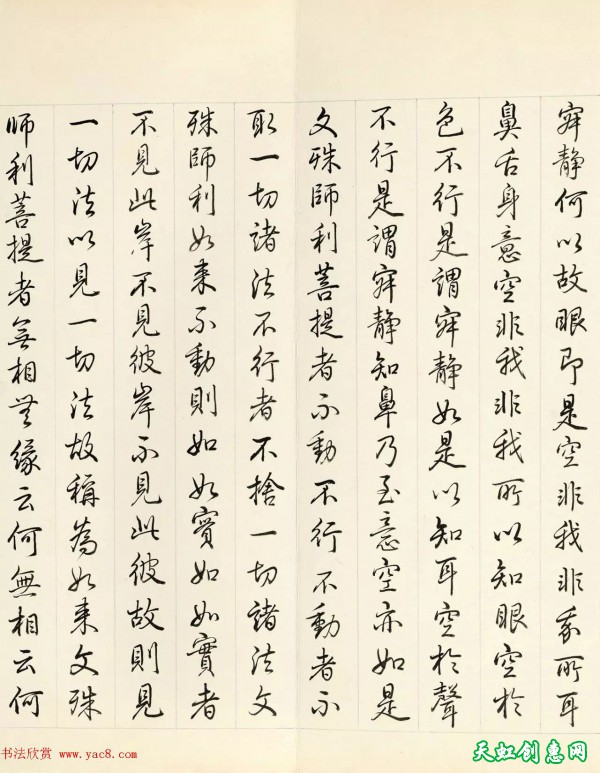 寂静何以故眼即是空非我非我所耳
鼻舌身意空非我非我所以知眼空於
色不行是謂寂静如是以知耳空於聲
不行是謂寂静知鼻乃至意空亦如是
文殊師利菩提者不動不行不動者不
取一切諸法不行者不捨一切諸法文
殊師利如来不動則如如實如如實者
不見此岸不見彼岸不見此彼故則見
一切法以見一切法故稱為如来文殊
師利菩提者無相無緣云何無相云何
书法欣赏 www.yac8.com
天虹创惠网